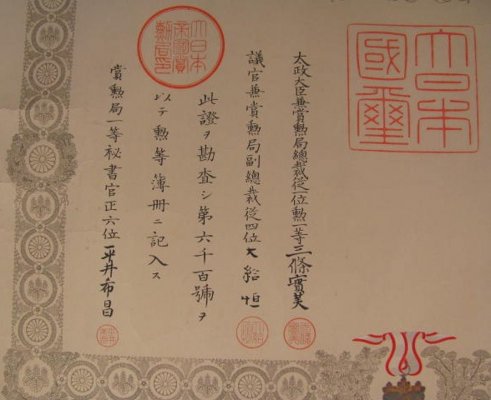 大日本
國璽
太政大臣兼賞勲局總裁從一位勲一等三條實美
議官兼賞勲局副總裁從四位大給恒
大日本
帝國賞
勲局印
此證ヲ勘査シ第六千百號ヲ
以テ勲等簿冊ニ記入ス
賞勲局一等秘書官正六位平井希昌